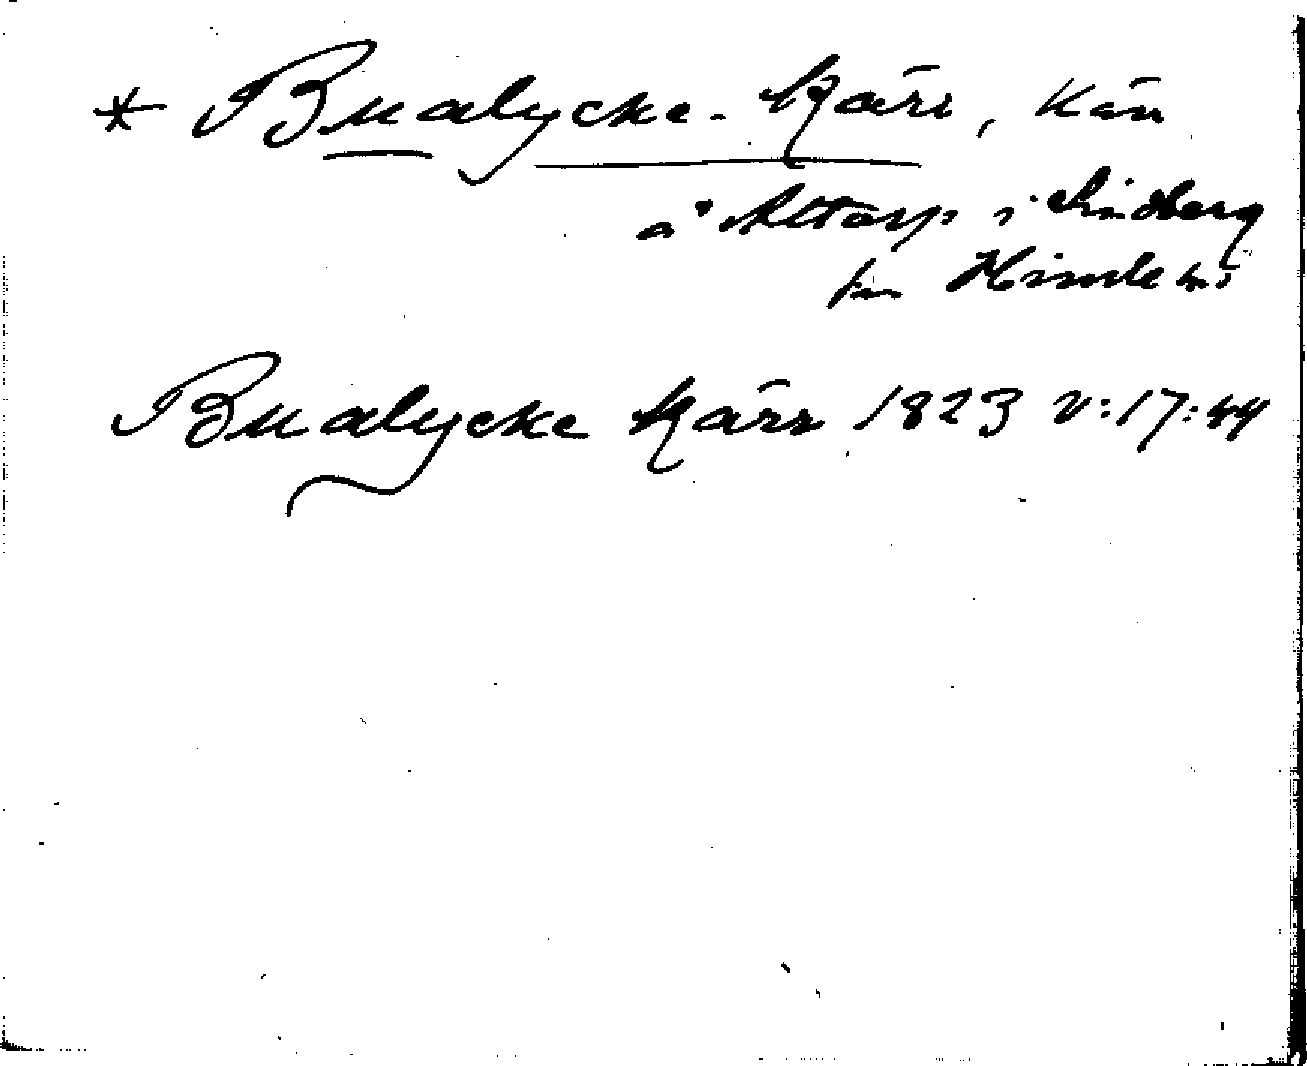 * Bualycke-Kärr, Kärr
å Attarp i Lindberg
sn Himle hd
Bualycke Kärr 1823 V:17:44